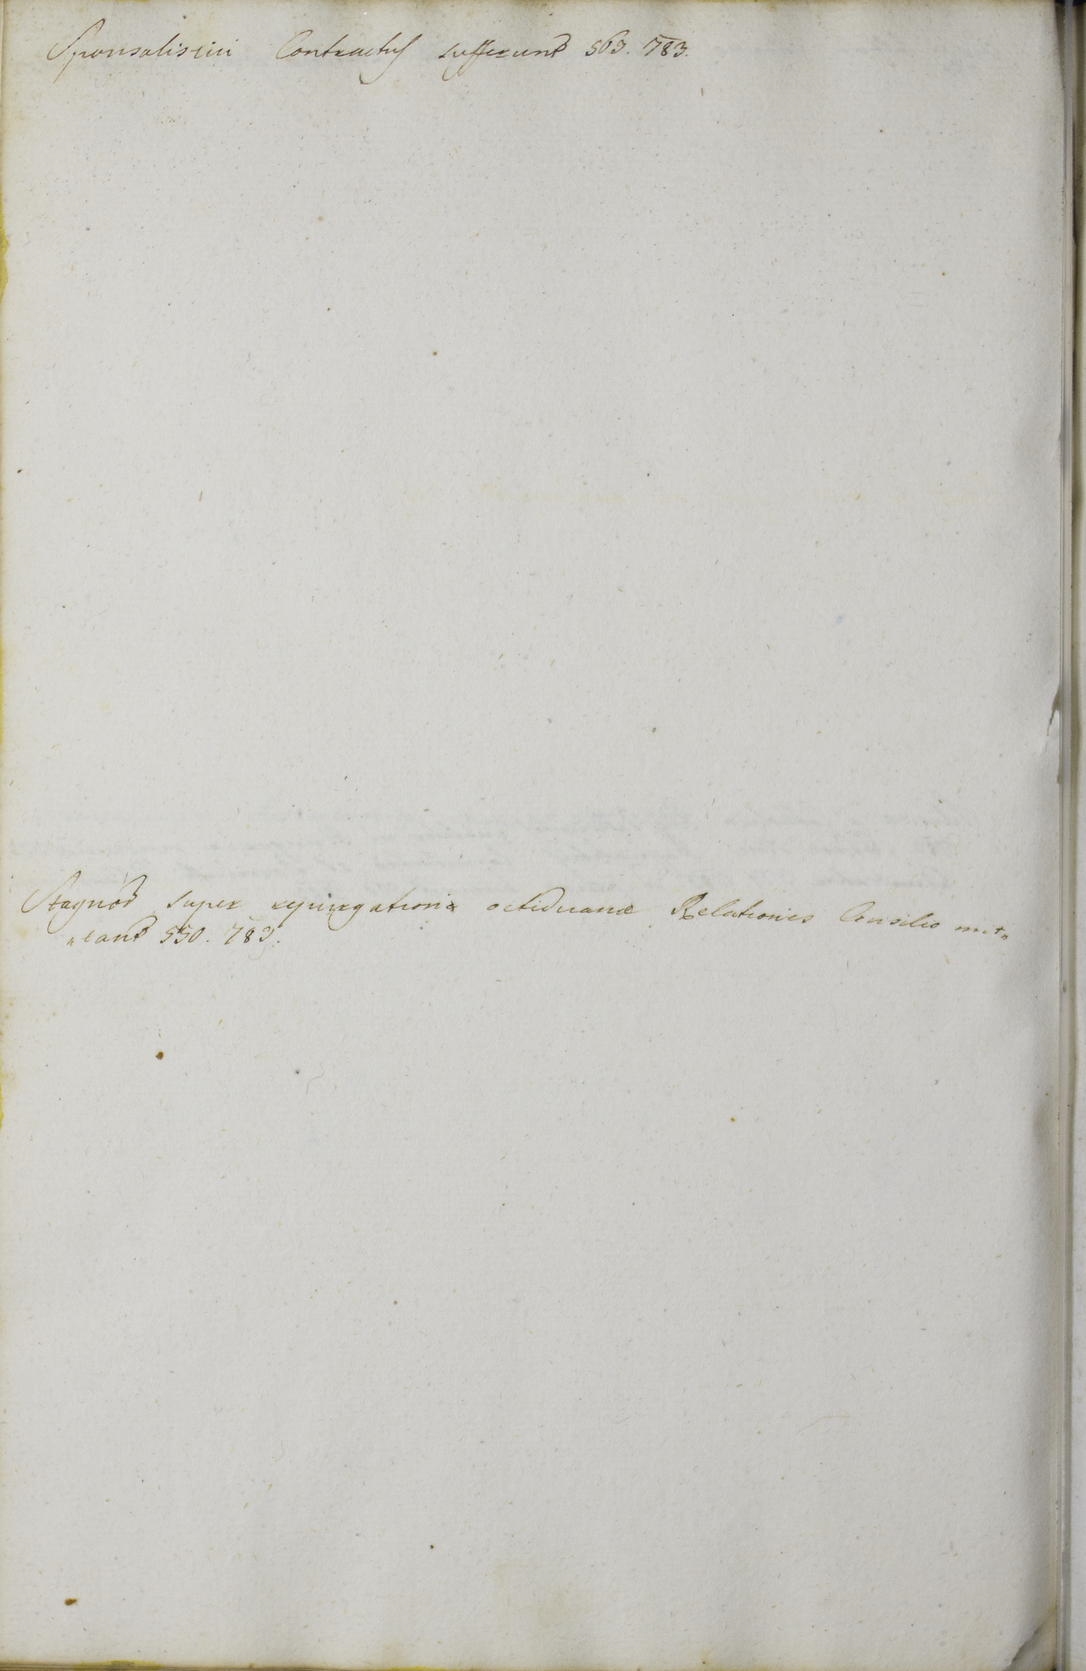 Sponsalitii Contractus suffer̄unt 563. 783.
Stagnor super expurgatione octiduanæ Relationes Consilio mit„
„tant 550. 783.